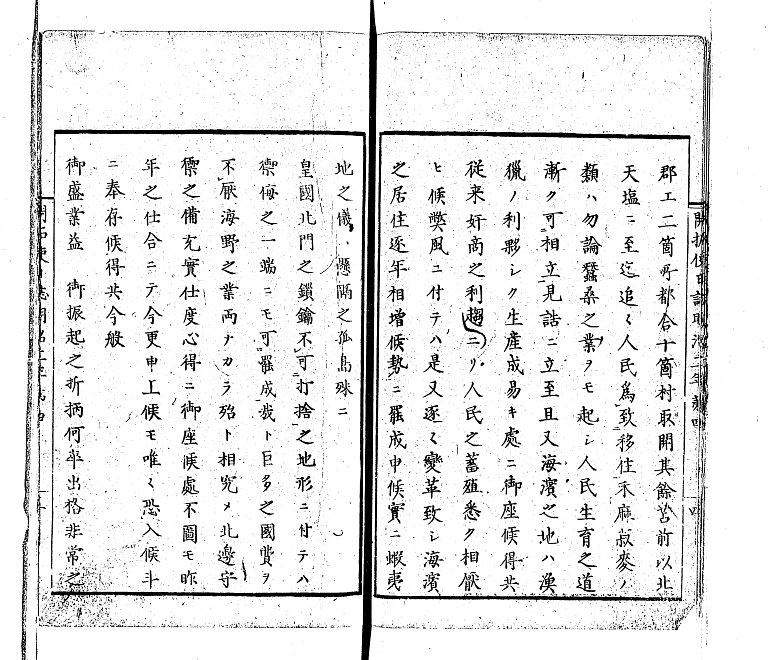 郡エ二箇所都合十箇村取開其餘苫前以北
天塩ニ至迄追〻人民為致移住禾麻菽麥ノ
類ハ勿論蠶桑之業ヲモ起シ人民生育之道
漸ク可相立見詰ニ立至且又海濱之地ハ漁
獵ノ利夥シク生産成易キ處ニ御座候得共
従来奸商之利趨ニリ人民之蓄殖悉ク相厭
ヒ候弊風ニ付テハ是又逐〻變革致シ海濱
之居住逐年相増候勢ニ罷成申候實ニ蝦夷
地之儀ハ懸隔之孤島殊ニ
皇國北門之鎖鑰不可打捨之地形ニ付テハ
禦侮之一端ニモ可罷成哉ト巨多之國費ヲ
不厭海野之業両ナカラ殆ト相究メ北邊守
禦之備充實仕度心得ニ御座候處不圖モ昨
年之仕合ニテ今更申上候モ唯〻恐入候斗
ニ奉存候得共今般
御盛業益 御振起之折柄何卒出格非常之